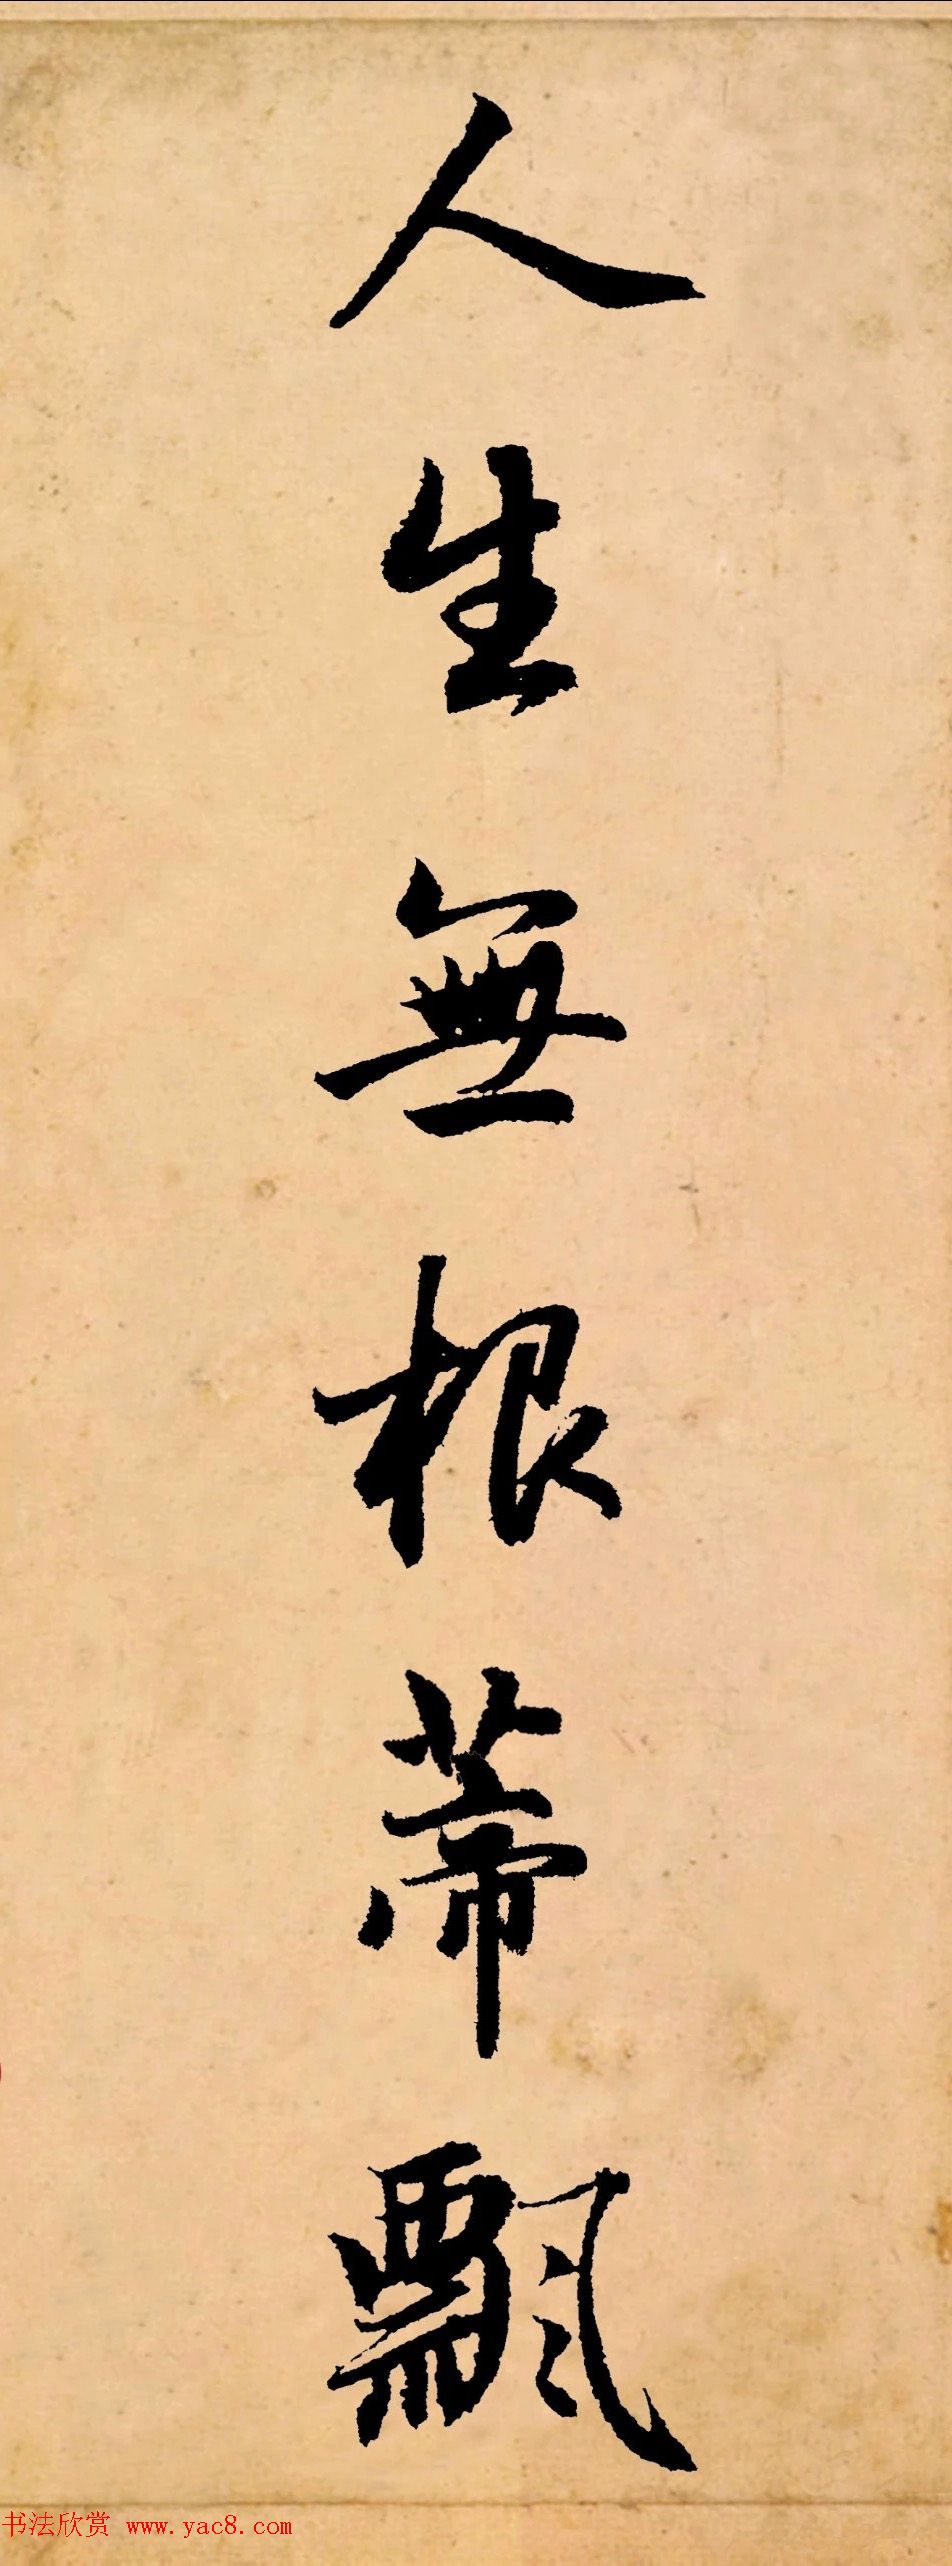 人生無根蒂飄
书法欣赏 www.yac8.com